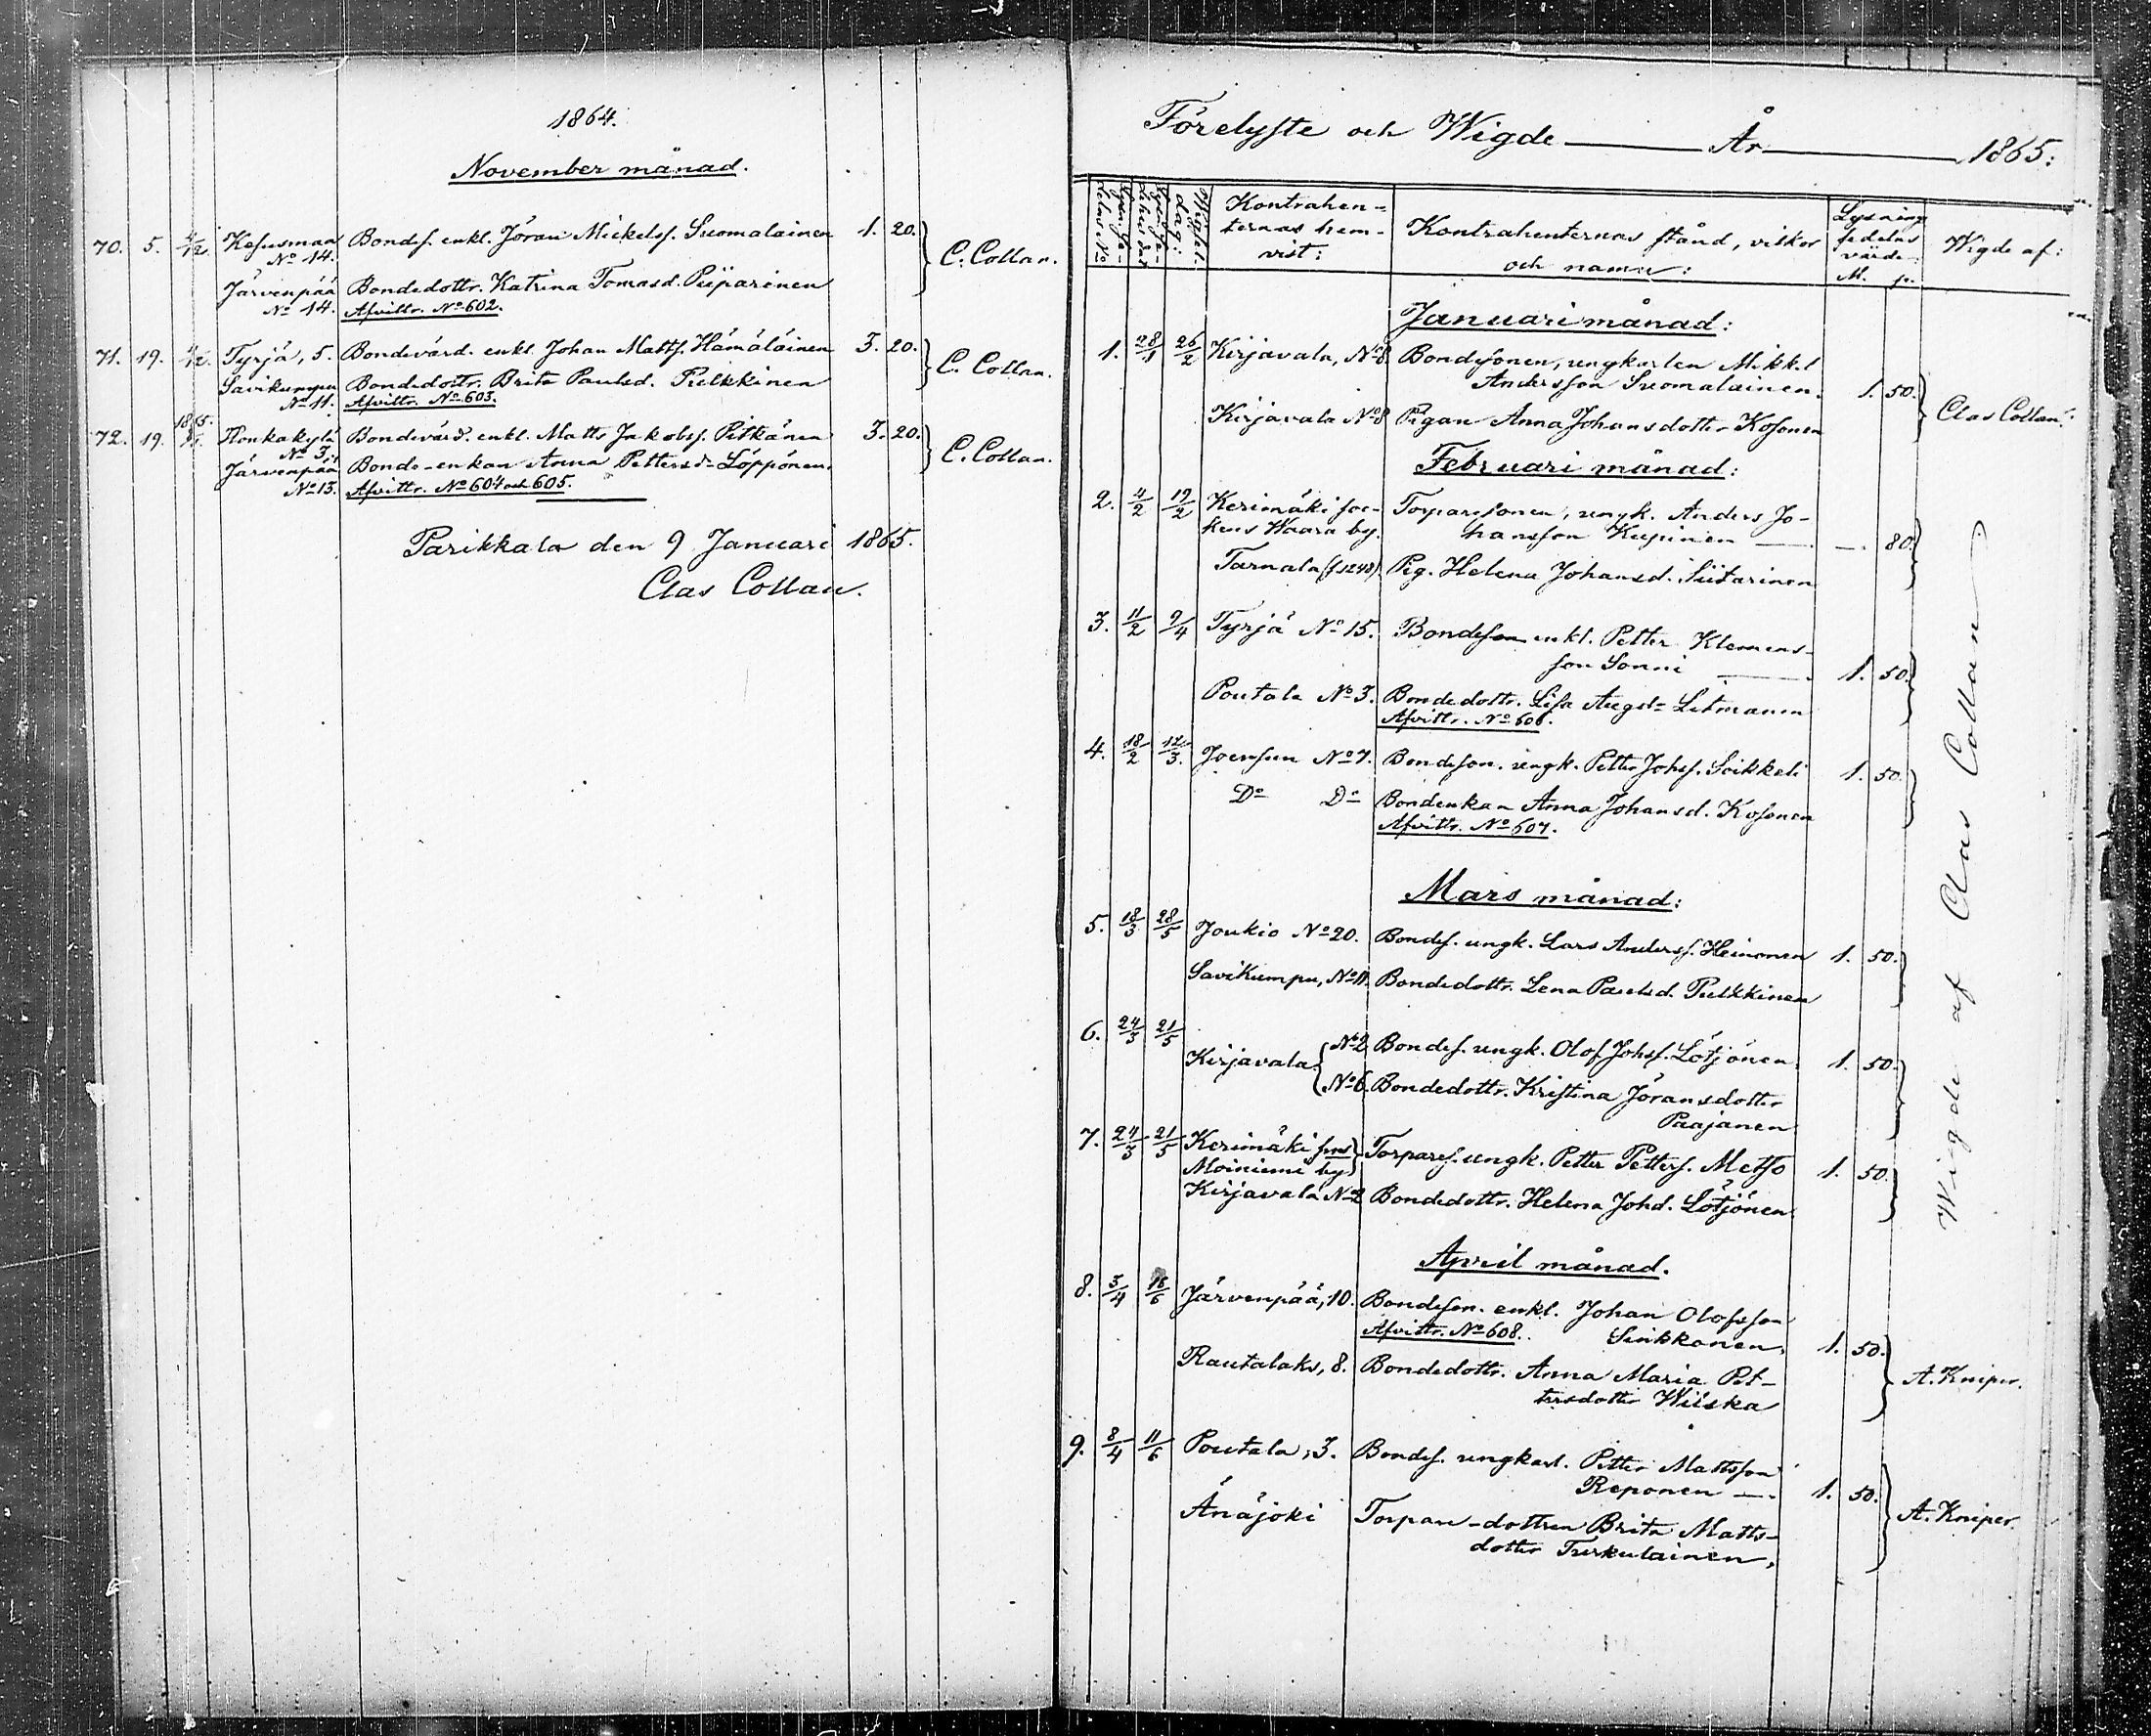 1864.
November månad.
70. 5. 4/12. Kesusmaa Bondes. enkl. Jöran Mickelss. Suomalainen 1. 20.
No 14.
C. Collan.
Järvenpää Bondedottr. Katrina Tomasd. Piiparinen
No 14. Afvittr. No 602.
71. 19. 4/12. Tyrjä, 5. Bondevärd. enkl. Johan Matts. Hämäläinen 3. 20.
C. Collan.
Savikumpu Bondedottr. Brita Paulsd. Pulkkinen
No 11. Afvittr. No 603.
1865.
72. 19. Honkakylä Bondevärd. enkl. Matts Jakobss. Pitkänen 3. 20.
No 3.
C. Collan.
Järvenpää Bonde-enkan Anna Pettersd. Löppönen.
No 13. Afvittr. No 604 och 605.
Parikkala den 9 Januari 1865.
Clas Collan.
Förelyste och Wigde År 1865:
Kontrahen-
ternas hem-
vist:
Kontrahenternas stånd, vilkor
och namn:
Lysning
sedelns
värde.
M. p.
Wigde af:
Januari månad:
1. 28/1 26/2 Kirjavala, No 8 Bondesonen, ungkarlen Mikkel
Andersson Suomalainen. 1. 50.
Clas Collan.
Kirjavala No 8 Pigan Anna Johansdotter Kosonen
Februari månad:
2. 4/2 19/2 Kerimäki soc- Torparesonen, ungk. Anders Jo-
kens Waara by. hansson Kupinen — —. 80.
Tarnala (s 1248) Pig. Helena Johansd. Siitarinen
3. 11/2 9/4 Tyrjä No 15. Bondeson enkl. Petter Klemens-
son Sonni 1. 50.
Poutala No 3. Bondedottr. Lisa Augsd. Litmanen
Afvittr. No 606.
4. 18/2 12/3. Joensuu No 7. Bondeson. ungk. Petter Johss. Soikkeli 1. 50.
Do Do Bondenkan Anna Johansd. Kosonen
Afvittr. No 607.
Mars månad:
5. 18/3 28/5 Joukio No 20. Bondes. ungk. Lars Anderss. Heinonen 1. 50.
Savikumpu, No 11. Bondedottr. Lena Paulsd. Pulkkinen
6. 24/3 21/5
Kirjavala No 2 Bondes. ungk. Olof Johss. Lötjönen. 1. 50.
No 6. Bondedottr. Kristina Jöransdotter
Paajanen
7. 24/3 21/5 Kerimäki sns Torpares. ungk. Petter Petters. Metso 1. 50.
Moiniemi by
Kirjavala No 2 Bondedottr. Helena Johd. Lötjönen.
Wigde af Clas Collan
April månad.
8. 3/4 16/6 Järvenpää, 10. Bondeson. enkl. Johan Olofsson
Afvittr. No 608. Sinkkonen, 1. 50.
A. Kniper.
Rautalaks, 8. Bondedottr. Anna Maria Pet-
tersdotter Wilska
9. 8/4 11/6 Poutala, 3. Bondes. ungkarl. Petter Mattsson
Reponen —. 1. 50.
A. Kniper.
Änäjoki Torpare-dottren Brita Matts-
dotter Turkulainen,